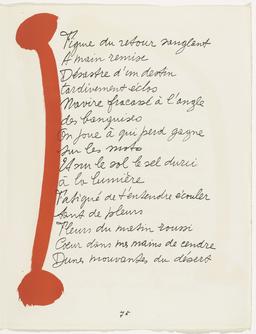 Figue du retour sanglant
A main remise
Désastre d'un destin
tardivement éclos
Navire fracassé à l'angle
des banquises
On joue à qui perd gagne
sur les mots
Et sur le sol le sel durci
à la lumière
Fatigué de t'entendre écouler
tant de pleurs
Fleurs du matin roussi
Cœur dans mes mains de cendre
Dunes mouvantes du désert
75